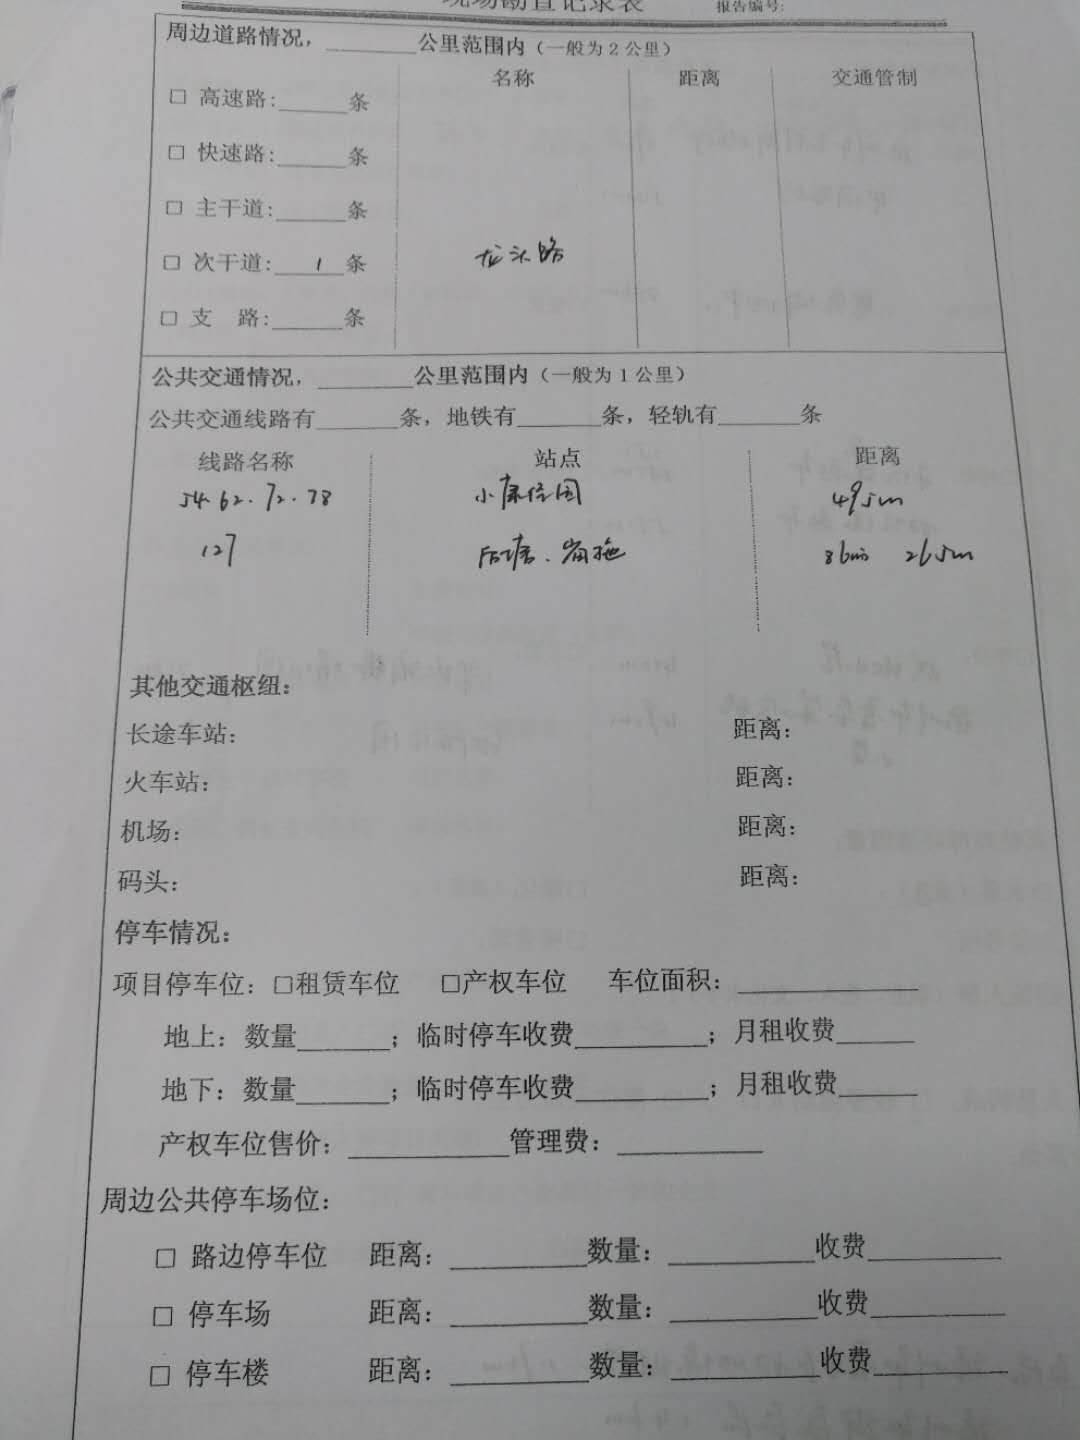 现场勘查记录表 报告编号:
周边道路情况，________公里范围内（一般为2公里）
名称 距离 交通管制
□ 高速路:______条
□ 快速路:______条
□ 主干道:______条
□ 次干道:___1___条 龙头路
□ 支 路:______条
公共交通情况，________公里范围内（一般为1公里）
公共交通线路有_______条，地铁有_______条，轻轨有_______条
线路名称 站点 距离
54.62.72.78 小康佳园 495m
127 265m
其他交通枢纽：
长途车站： 距离：
火车站： 距离：
机场： 距离：
码头： 距离：
停车情况：
项目停车位：□租赁车位 □产权车位 车位面积：______________
地上：数量_______；临时停车收费__________；月租收费______
地下：数量_______；临时停车收费__________；月租收费______
产权车位售价：____________管理费：___________
周边公共停车场位：
□ 路边停车位 距离：__________数量：___________收费__________
□ 停车场 距离：__________数量：___________收费__________
□ 停车楼 距离：__________数量：___________收费__________